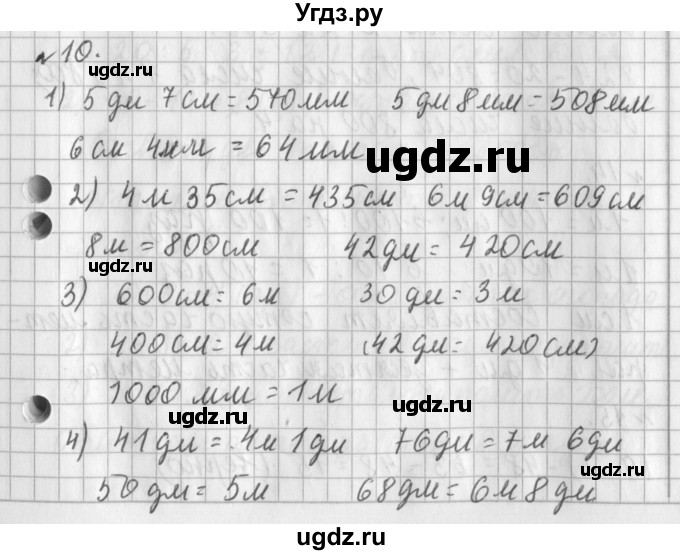 Угдз.ру
№10.
1) 5 дм 7 см = 570 мм 5 дм 8 мм = 508 мм
6 см 4 мм = 64 мм
2) 4 м 35 см = 435 см 6 м 9 см = 609 см
8 м = 800 см 42 дм = 420 см
3) 600 см = 6 м 30 дм = 3 м
400 см = 4 м (42 дм = 420 см)
1000 мм = 1 м
4) 41 дм = 4 м 1 дм 76 дм = 7 м 6 дм
50 дм = 5 м 68 дм = 6 м 8 дм
ugdz.ru
ugdz.ru
ugdz.ru
ugdz.ru
ugdz.ru
ugdz.ru
ugdz.ru
ugdz.ru
ugdz.ru
ugdz.ru
ugdz.ru